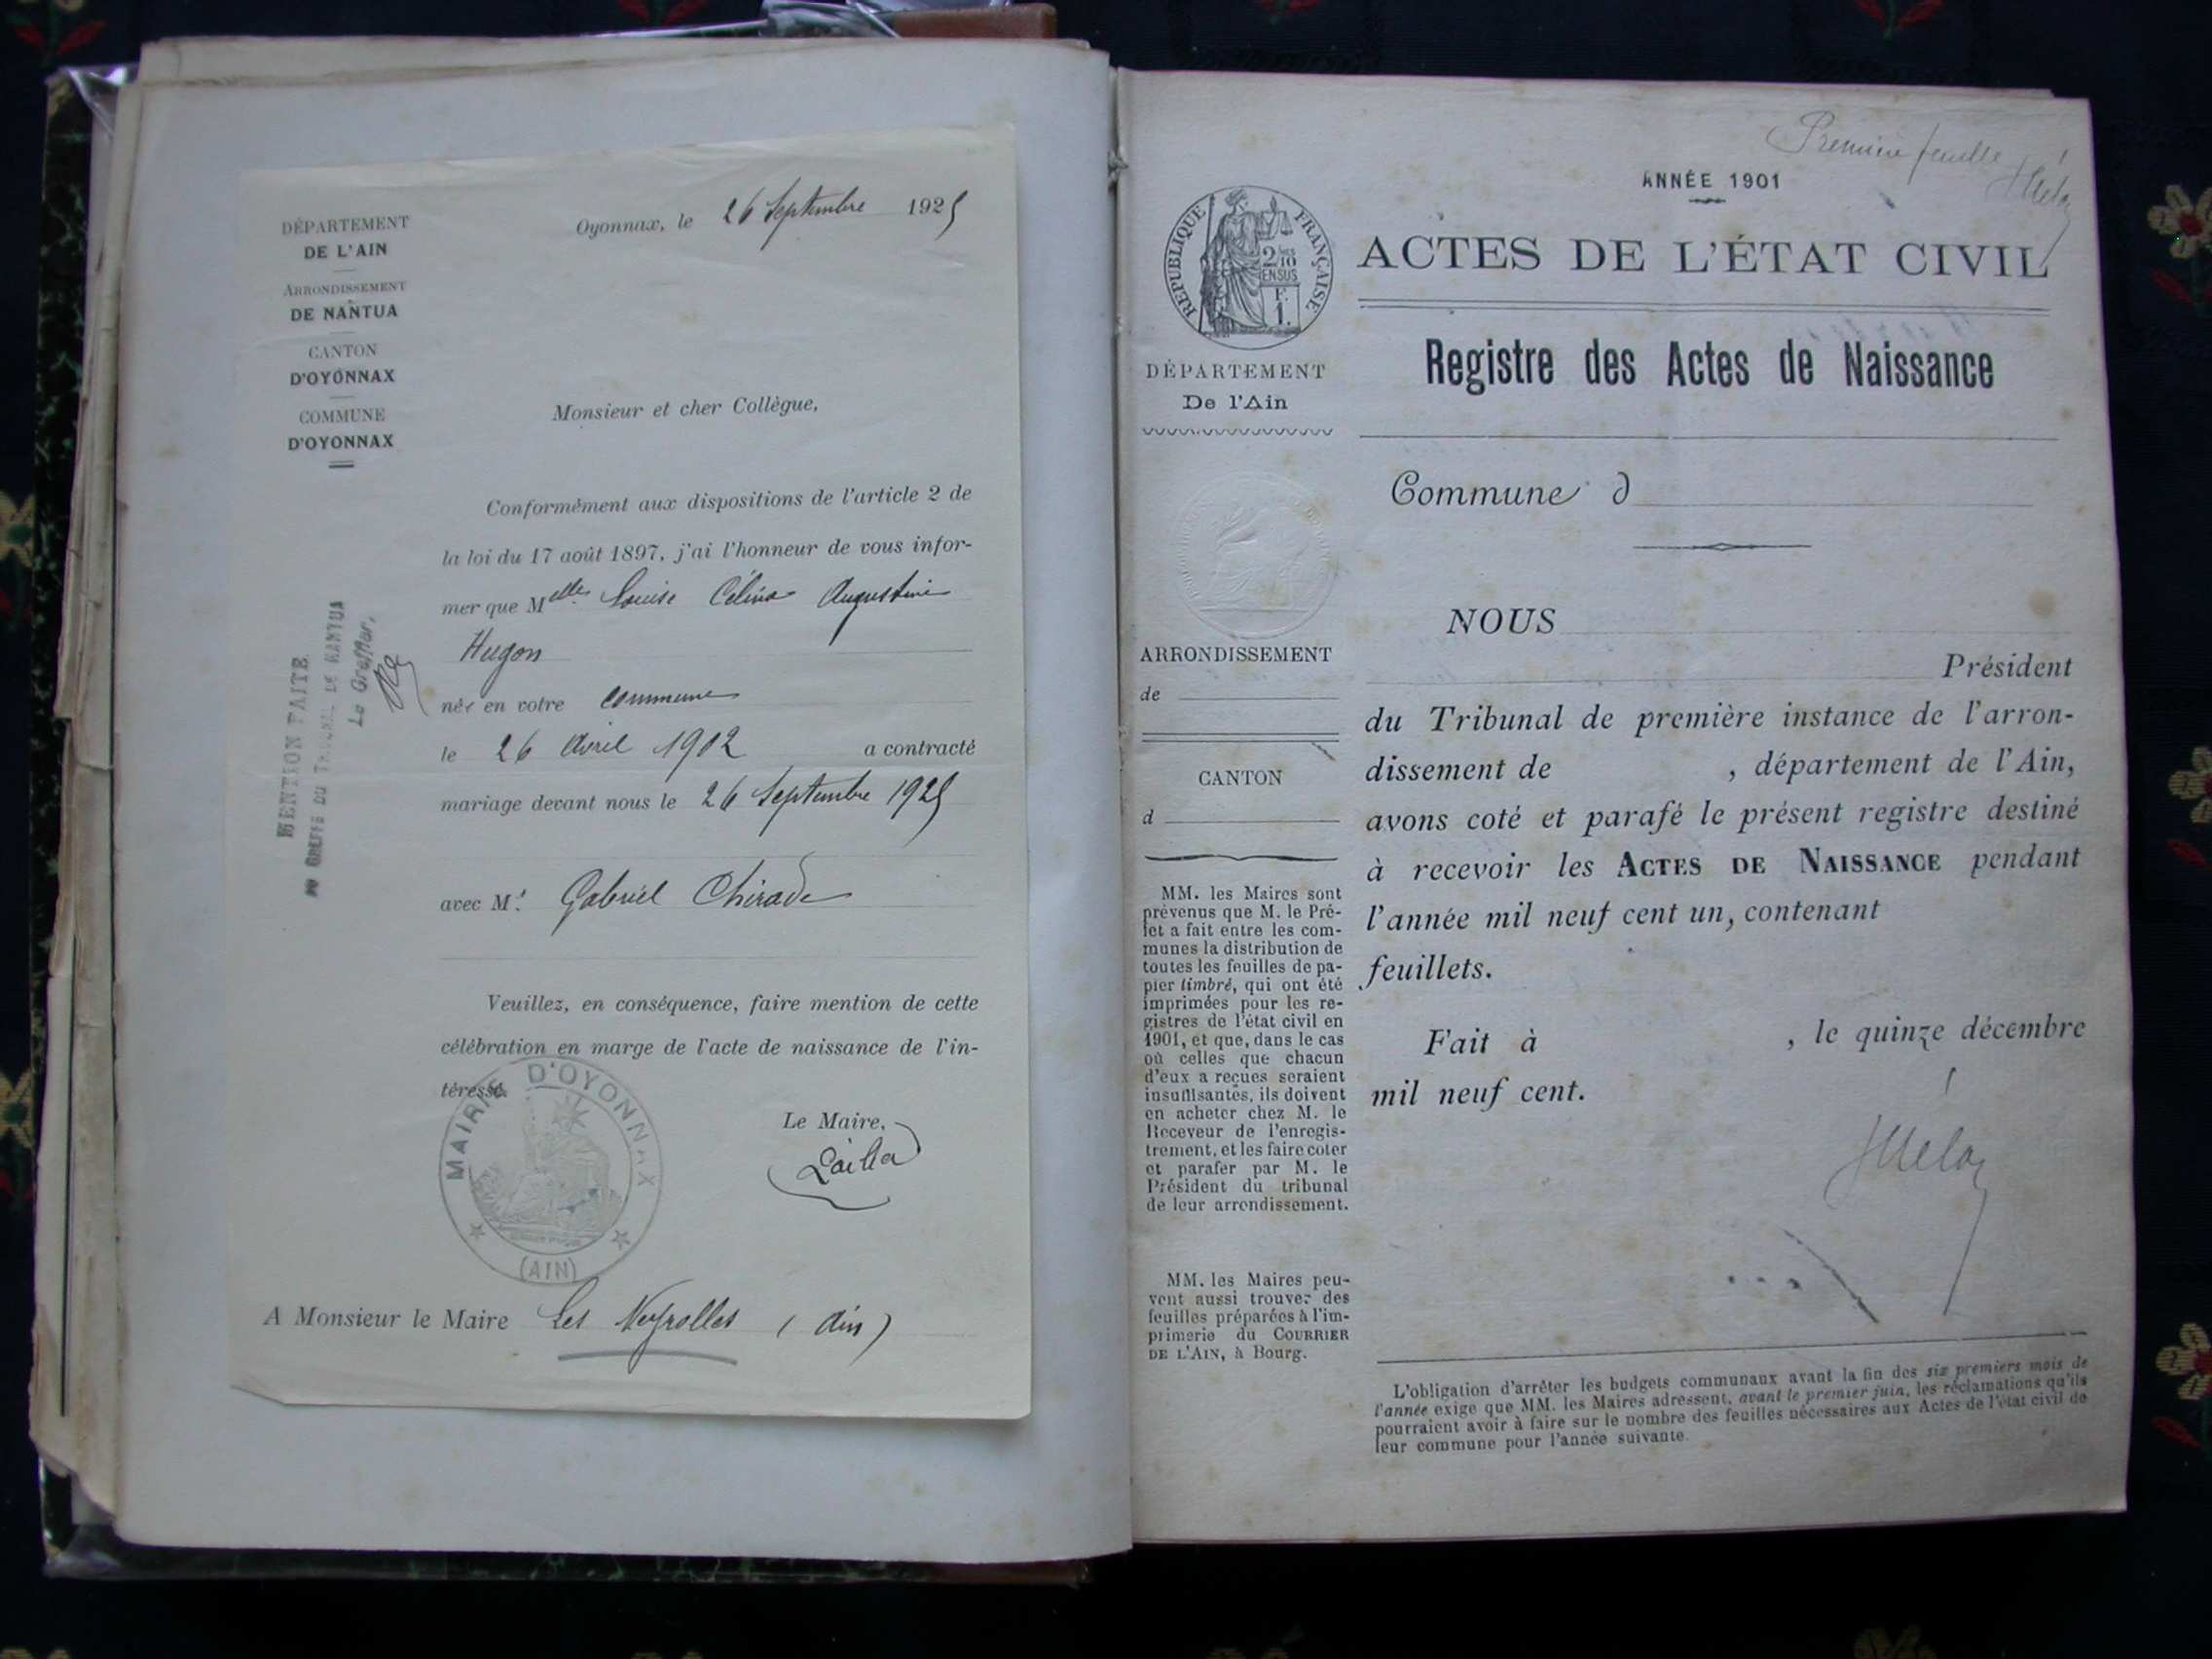 DÉPARTEMENT
DE L'AIN
ARRONDISSEMENT
DE NANTUA
CANTON
D'OYONNAX
COMMUNE
D'OYONNAX
Oyonnax, le 26 Septembre 1925
Monsieur et cher Collègue,
Conformément aux dispositions de l'article 2 de
la loi du 17 août 1897, j'ai l'honneur de vous infor-
mer que Melle Louise Célina Augustine
Hugon
née en votre commune
le 26 Avril 1902 a contracté
mariage devant nous le 26 Septembre 1925
avec Mr Gabriel Chirade
Veuillez, en conséquence, faire mention de cette
célébration en marge de l'acte de naissance de l'in-
téressé.
Le Maire,
MAIRIE D'OYONNAX
(AIN)
A Monsieur le Maire Les Neyrolles (Ain)
MENTION FAITE
AU GREFFE DU TRIBUNAL DE NANTUA
Le Greffier,
Première feuille
ANNÉE 1901
RÉPUBLIQUE FRANÇAISE
2/10
EN SUS
F.
1.
ACTES DE L'ÉTAT CIVIL
Registre des Actes de Naissance
DÉPARTEMENT
De l'Ain
Commune d
NOUS
Président
du Tribunal de première instance de l'arron-
dissement de , département de l'Ain,
avons coté et parafé le présent registre destiné
à recevoir les ACTES DE NAISSANCE pendant
l'année mil neuf cent un, contenant
feuillets.
Fait à , le quinze décembre
mil neuf cent.
ARRONDISSEMENT
de
CANTON
d
MM. les Maires sont
prévenus que M. le Pré-
fet a fait entre les com-
munes la distribution de
toutes les feuilles de pa-
pier timbré, qui ont été
imprimées pour les re-
gistres de l'état civil en
1901, et que, dans le cas
où celles que chacun
d'eux a reçues seraient
insuffisantes, ils doivent
en acheter chez M. le
Receveur de l'enregis-
trement, et les faire coter
et parafer par M. le
Président du tribunal
de leur arrondissement.
MM. les Maires peu-
vent aussi trouver des
feuilles préparées à l'im-
primerie du COURRIER
DE L'AIN, à Bourg.
L'obligation d'arrêter les budgets communaux avant la fin des six premiers mois de
l'année exige que MM. les Maires adressent, avant le premier juin, les réclamations qu'ils
pourraient avoir à faire sur le nombre des feuilles nécessaires aux Actes de l'état civil de
leur commune pour l'année suivante.